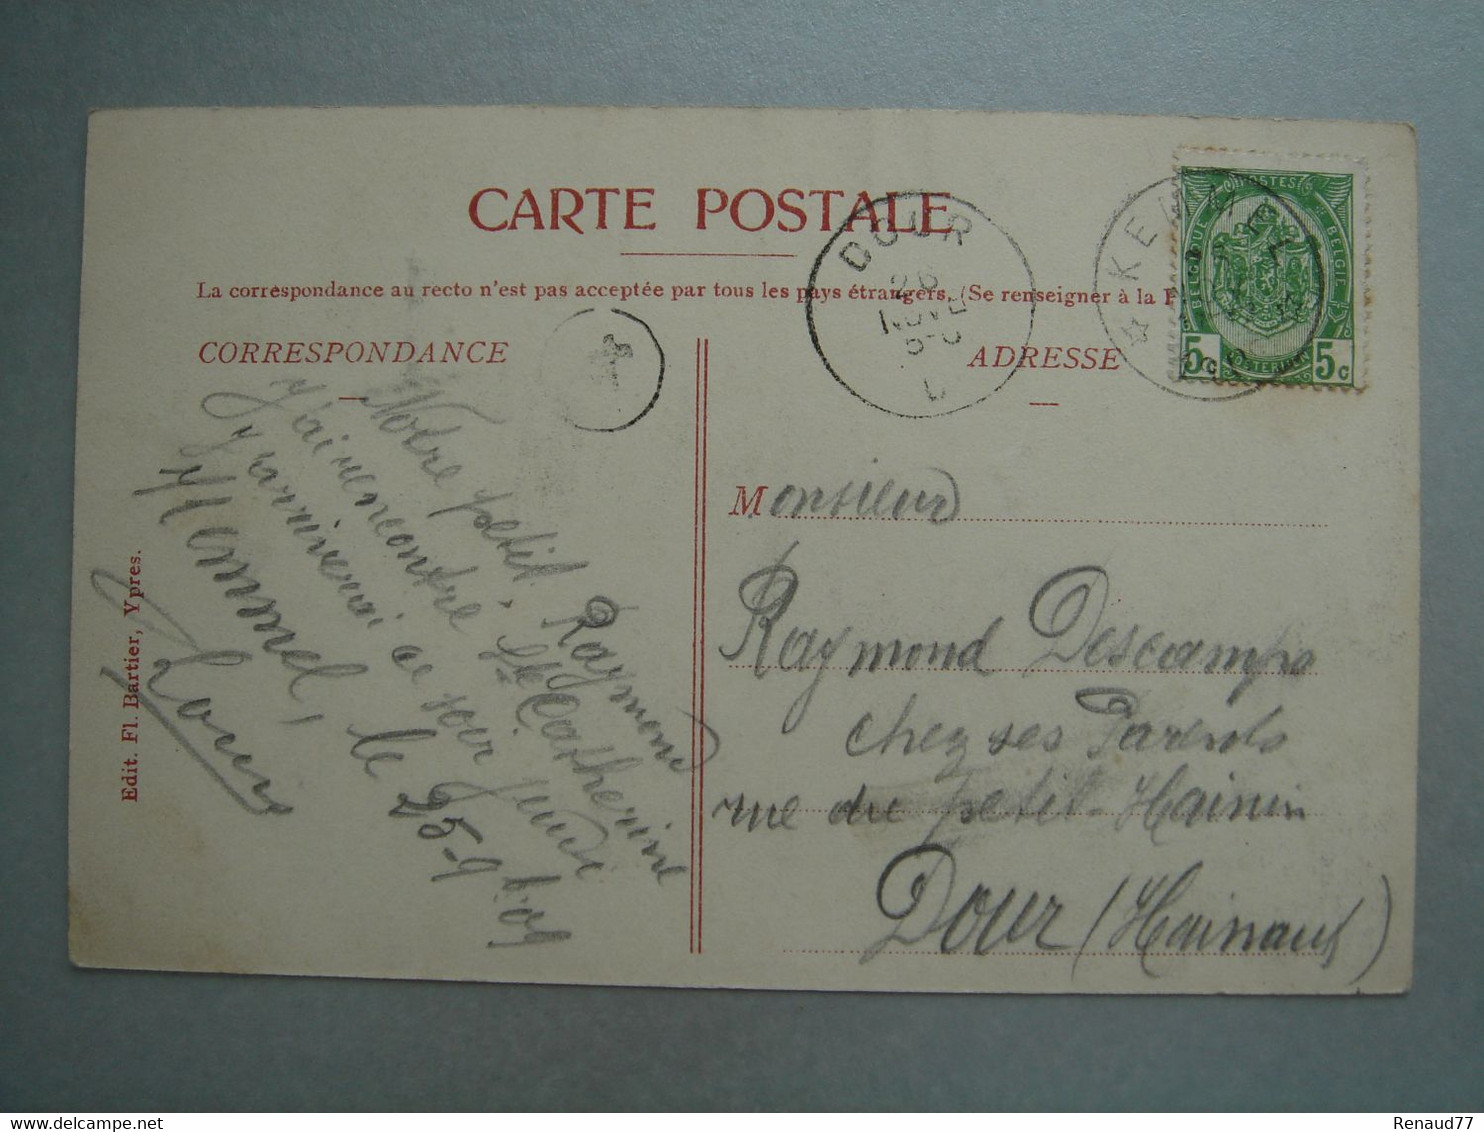 CARTE POSTALE
La correspondance au recto n'est pas acceptée par tous les pays étrangers. (Se renseigner à la P
CORRESPONDANCE
ADRESSE
DOUR
26
NOVE
KEMMEL
BELGIQUE
BELGIE
5c
5c
Notre petit Raymond
J'ai rencontré Ste Catherine
J'y arriverai ce soir jeudi
Kemmel, le 25-9
Edit. Fl. Bartier, Ypres.
Monsieur
Raymond Descamps
chez ses Parents
rue du petit-Hainin
Dour (Hainaut)
Renaud77
delcampe.net